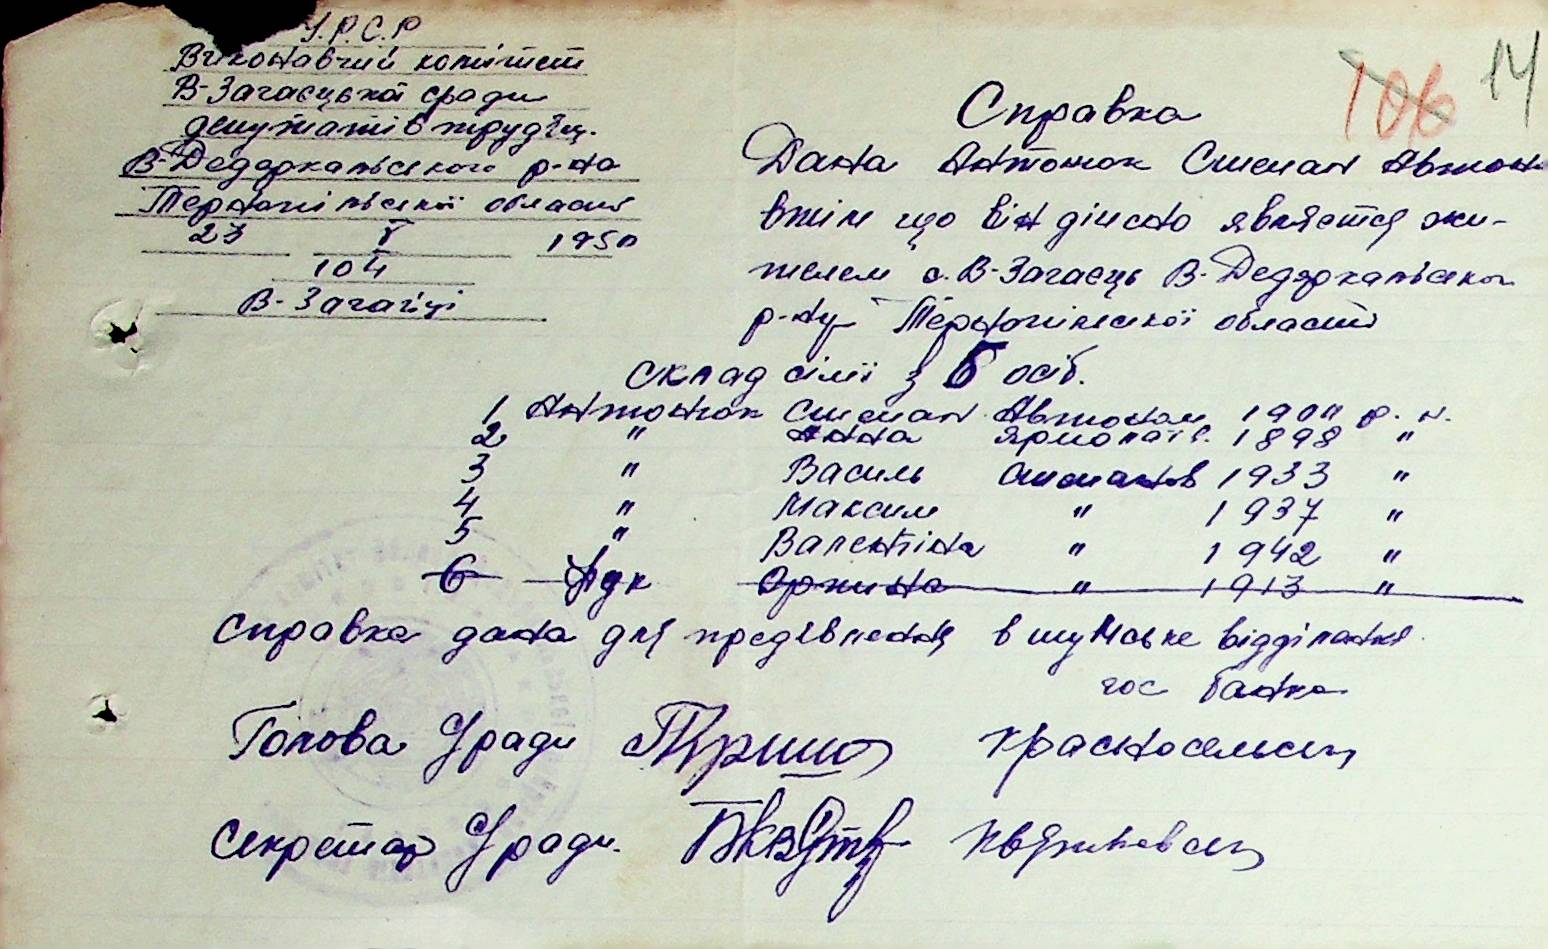 У.Р.С.Р
Виконавчий комітет
В-Загаєцької сради
депутатів трудящ.
В-Дедеркальського р-на
Тернопільської области
23 V 1950
104
В-Загайці
106 14
Справка
Дана Антонюк Степан Автоно
вичу що він дійсно являєтся жи-
телем с. В-Загаєць В-Дедеркальського
р-ну Тернопільської области
склад сімї з 5 осіб.
1 Антонюк Степан Автоном 1900 р. н.
2 " Анна Ярмолаїв. 1898 "
3 " Василь Степанов 1933 "
4 " Максим " 1937 "
5 " Валентіна " 1942 "
6 " 1913 "
Справка дана для предявлення в шумське відділання
гос банка
Голова С/ради Красносельськ
Секретар С/ради.